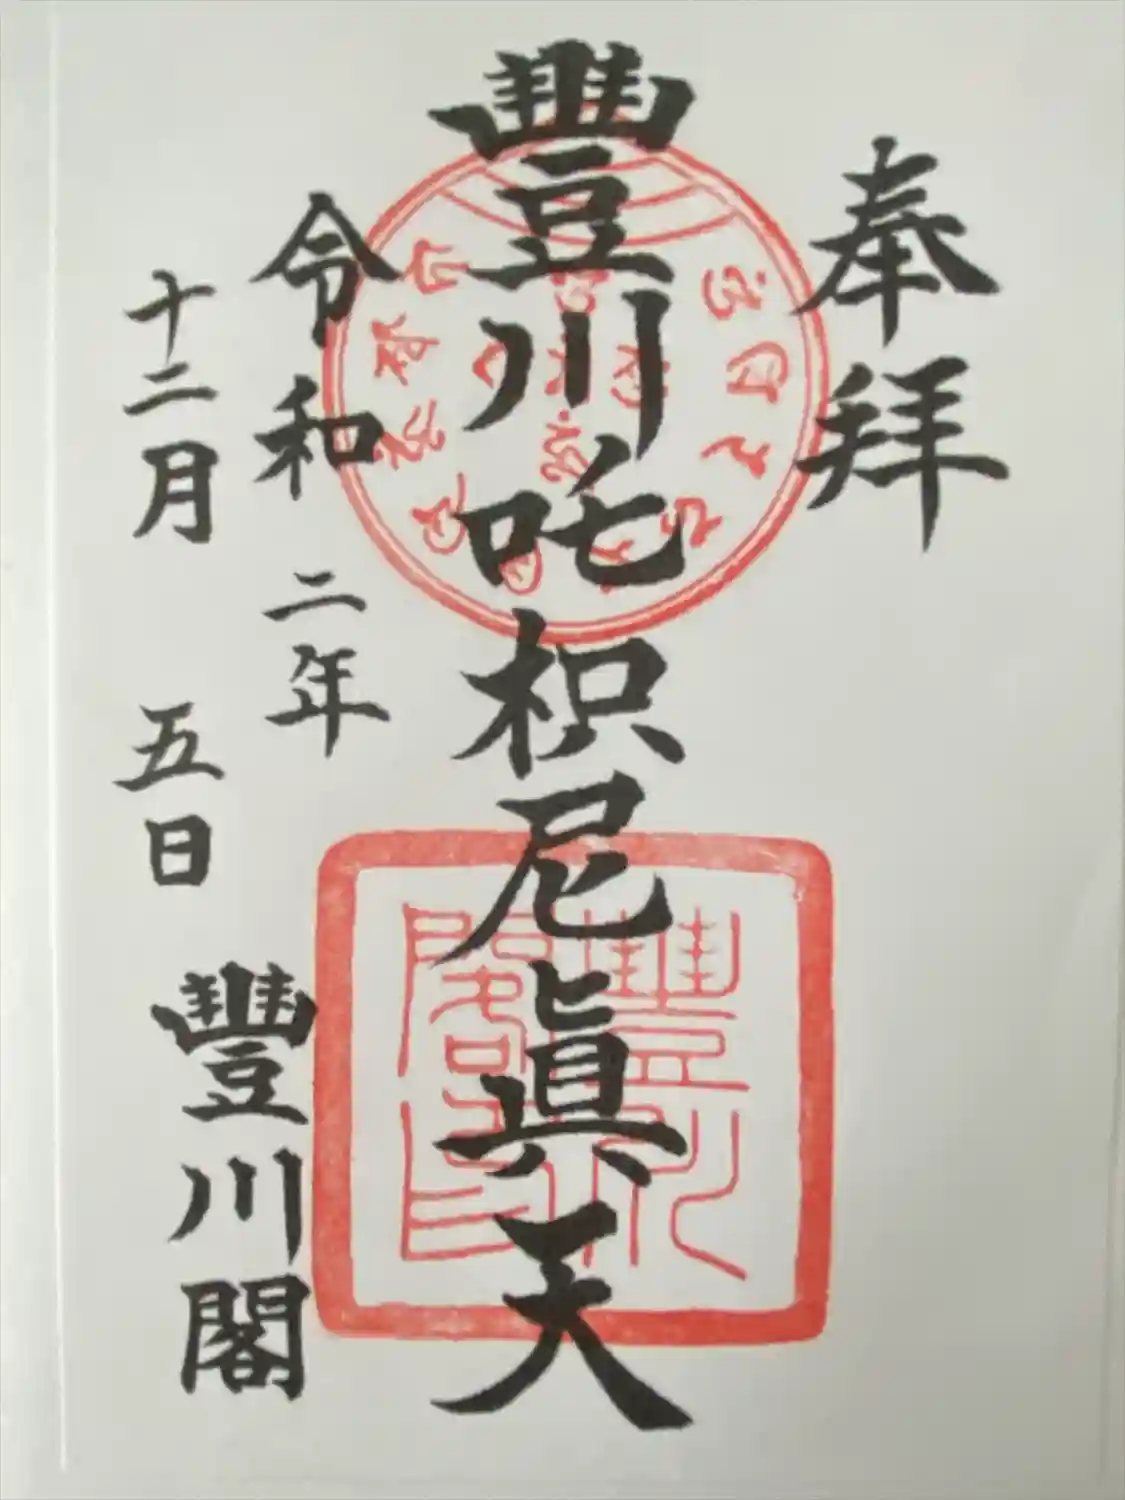 奉拜
豐川吒枳尼眞天
令和二年
十二月五日
豐川閣
豐川閣印